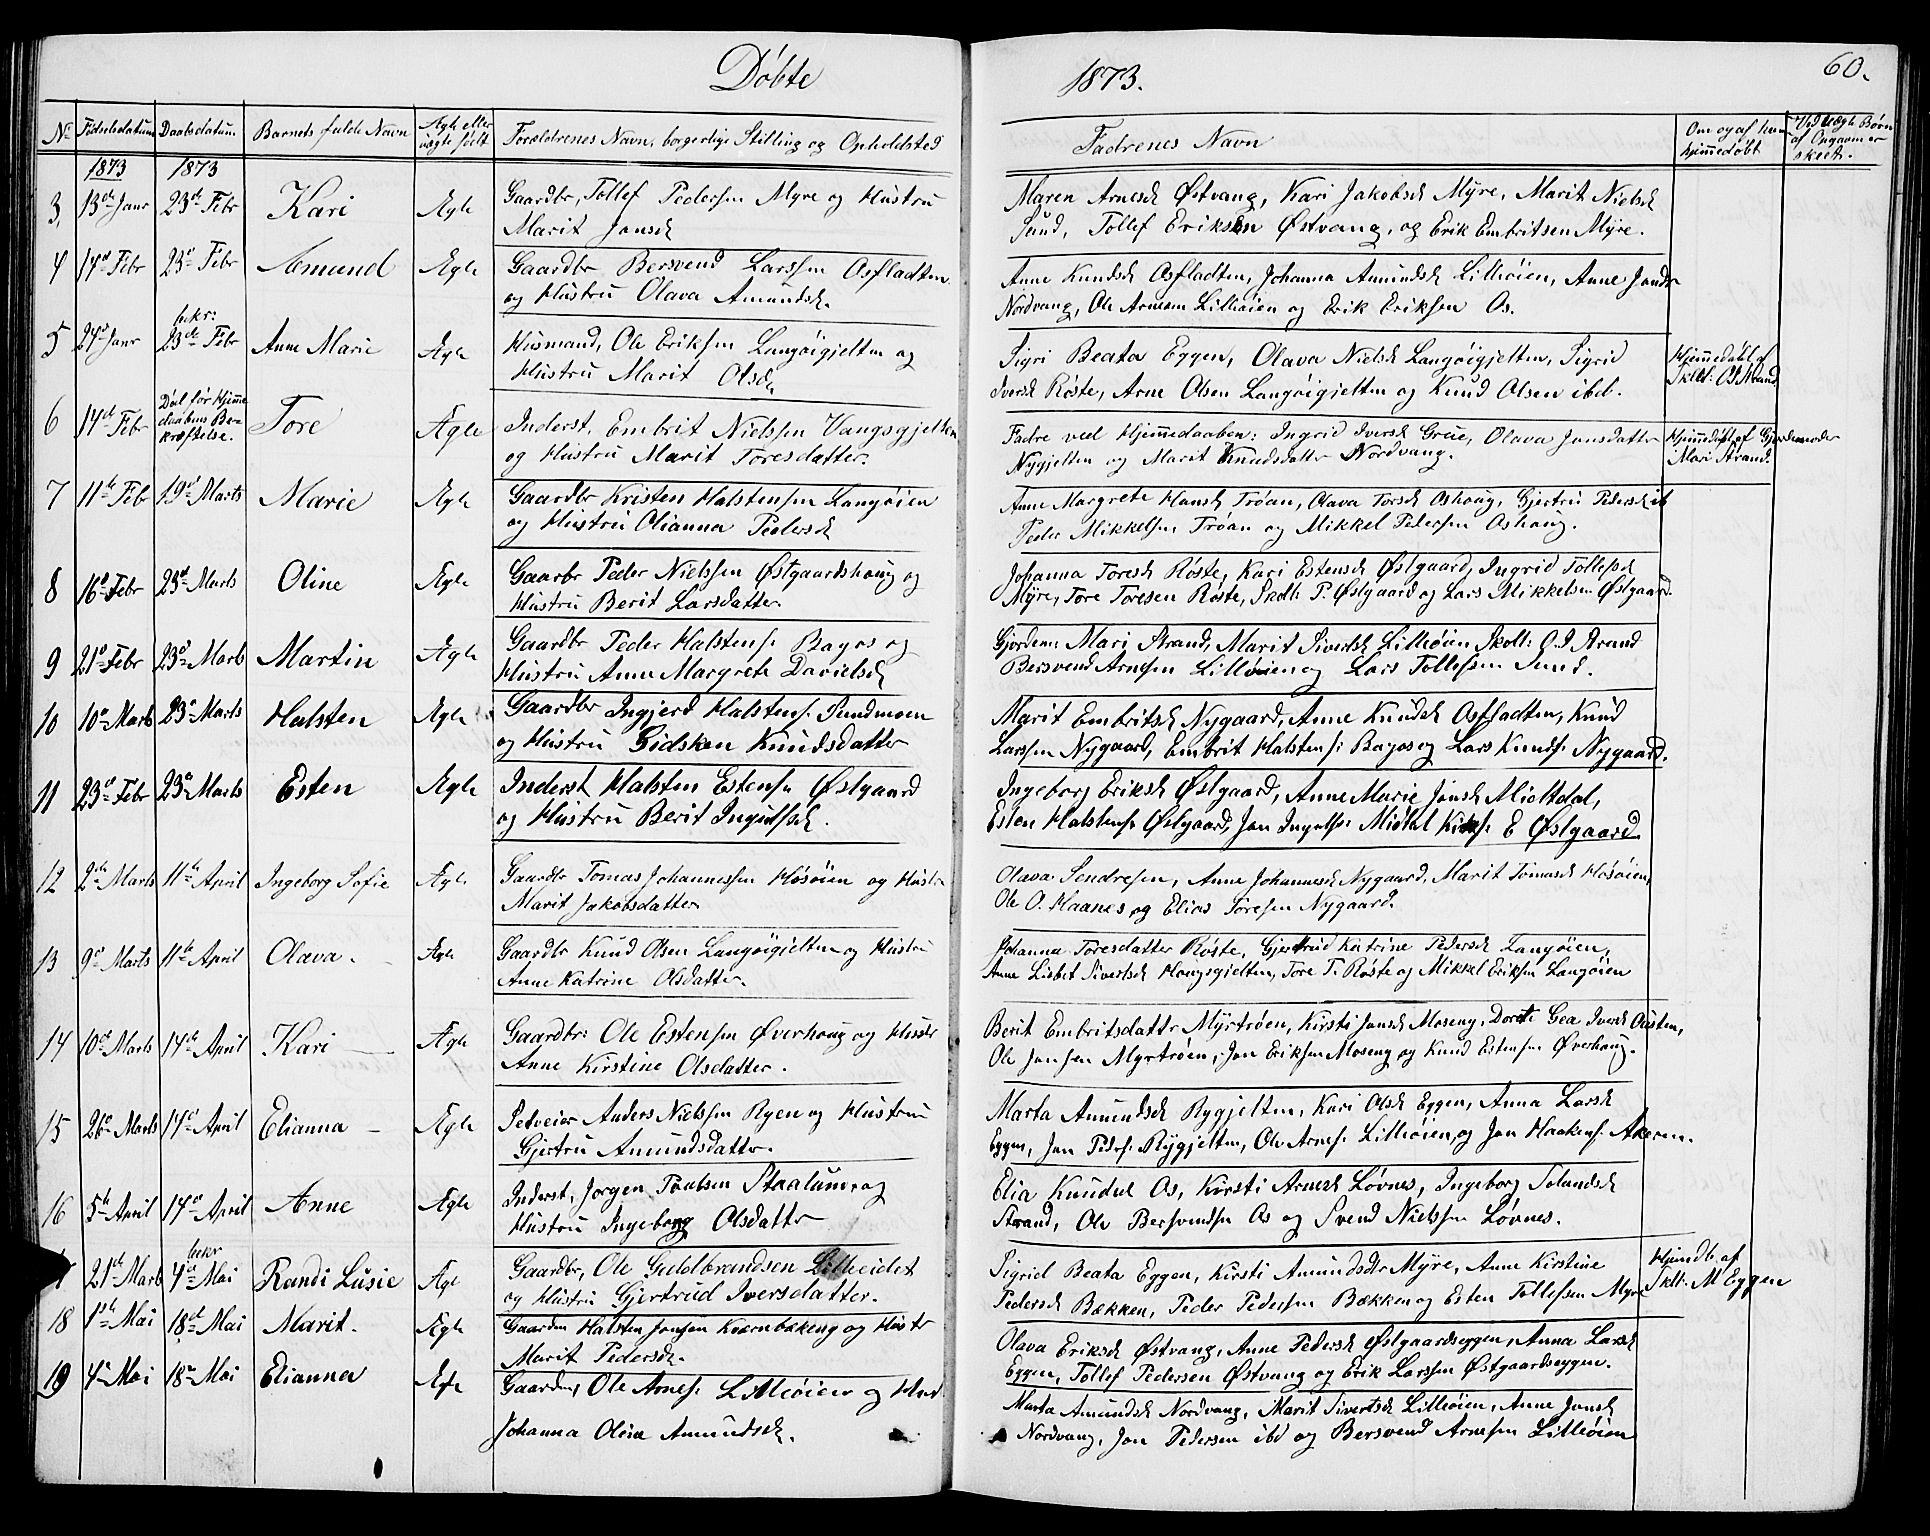 Døbte
1873.
60.
No Fødselsdatum Daabsdatum Barnets fulde Navn Ægte eller uægte født Forældrenes Navn, borgerlige Stilling og Opholdsted
Fadrenes Navn
Om og af hvem hjemmedøbt
Ved uægte Børn af Opgaven er skeet.
1873 1873
3, 13de Janr 23de Febr Kari Ægte Gaardbr, Tollef Pedersen Myre og Hustru
Marit Jonsd.
Maren Arnesd Østvang, Kari Jakobsd Myre, Marit Nielsd
Sund, Tollef Eriksen Østvang, og Erik Embritsen Myre.
4 14de Febr 23de Febr Amund Ægte Gaardbr Bersvend Larssen Osfladten
og Hustru Olava Amundsd.
Anne Knudsd Osfladten, Johanna Amundsd Lilleøien, Anne Jonsd
Nordvang, Ole Arnesen Lilleøien og Erik Eriksen Os.
5 24de Janr bekr: 23de Febr Anne Marie Ægte Husmand, Ole Eriksen Langøigjelten og
Hustru Marit Olsd.
Sigri Beata Eggen, Olava Nielsd Langøigjelten, Sigrid
Iversd Røste, Arne Olsen Langøigjelten og Knud Olsen ibd.
Hjemmedøbt af
Skoll: O S Strand
6 14de Febr Død før Hjemmedaabens Bekræftelse. Tore Ægte Inderst, Embrit Nielssen Vangsgjelten
og Hustru Marit Toresdatter.
Fadre ved Hjemmedaaben: Ingrid Iversd Grue, Olava Jonsdatter
Nygjelten og Marit Knudsdatter Nordvang.
Hjemmedøbt af Gjordemoder
Mari Strand.
7 11te Febr 19de Marts Marie Ægte Gaardbr Kristen Halstensen Langøien
og Hustru Olianna Pedersd
Anne Margrete Hansd Trøan, Olava Torsd Oshoug, Gjertru Pedersd ib
Peder Mikkelsen Trøan og Mikkel Pedersen Oshoug.
8 16de Febr 23de Marts Oline Ægte Gaarbr Peder Nielssen Østgaardshoug og
Hustru Berit Larsdatter
Johanna Toresd Røste, Kari Estensd Østgaard, Ingrid Tollefsd
Myre, Tore Toresen Røste, Skoll: P. Østgaard og Lars Mikkelsen Østgaard.
9 21de Febr 23de Marts Martin Ægte Gaardbr Peder Halstens. Bagos og
Hustru Anne Margrete Danielsd
Gjordem: Mari Strand, Marit Sivertsd Lilleøien Skoll: O. S Strand
Bersvend Arnesen Lilleøien og Lars Tollefsen Sund.
10 10de Marts 23de Marts Halsten Ægte Gaardbr Ingjerd Halstens. Sundmoen
og Hustru Gidsken Knudsdatter
Marit Embritsd Nygaard, Anne Knudsd Osfladten, Knud
Larssen Nygaard, Embrit Halstens: Bagos og Lars Knuds: Nygaard.
11 23de Febr 23de Marts Esten Ægte Inderst Halsten Estens. Østgaard
og Hustru Berit Ingulfsd.
Ingeborg Eriksd Østgaard, Anne Marie Jonsd Midtdal,
Esten Halstens. Østgaard, Jon Ingulfs: E Østgaard
12 2den Marts 11te April Ingeborg Sofie Ægte Gaardbr Tomas Johannessen Høsøien og Hustr
Marit Jakobsdatter
Olava Sendresen, Anne Johannesd Nygaard, Marit Tomasd Høsøien,
Ole O. Haanes og Elias Toresen Nygaard.
13 9de Marts 11te April Olava. Ægte Gaardbr Knud Olsen Langøigjelten og Hustru
Anne Katrine Olsdatter.
Johanna Toresdatter Røste, Gjertrud Katrine Pedersd Langøien,
Anne Lisbet Sivertsd Hougsgjelten, Tore T. Røste og Mikkel Eriksen Langøien
14 10de Marts 14de April Kari Ægte Gaardbr: Ole Estensen Øverhoug og Hustr
Anne Kirstine Olsdatter.
Berit Embritsdattr Myrtrøen, Kirsti Jonsd Moseng, Dorte Gea Iversd Ousten,
Ole Jonsen Myrtrøen, Jon Eriksen Moseng og Knud Estensen Øverhoug.
15 26de Marts 14de April Elianna Ægte Selveier Anders Nielssen Ryen og Hustru
Gjertru Amundsdatter.
Marta Amundsd Rygjelten, Kari Olsd Eggen, Anna Larsd
Eggen, Jon Peders. Rygjelten, Ole Arnes. Lilleøien, og Jon Haakens. Akeren.
16 5te April 14de April Anne Ægte Inderst, Jørgen Poulsen Staalum, og
Hustru Ingeborg Olsdatter
Elia Knudsd Os, Kirsti Arnesd Løvnes, Ingeborg Solandsd
Strand, Ole Bersvendsen Os og Svend Nielssen Løvnes.
21de Marts bekr 4de Mai Randi Lusie Ægt Gaardbr, Ole Guldbrandsen Lilleeidet
og Hustru Gjertrud Iversdatter.
Sigrid Beata Eggen, Kirsti Amundsdtr Myre, Anne Kirstine
Pedersd Bækken, Peder Pedersen Bækken og Esten Tollefsen Myre
Hjemdb. af
Skll: M Eggen
18 1ste Mai 18de Mai Marit. Ægte Gaardm Halsten Jonsen Kværnbækeng og Hustr
Marit Pedersd.
Olava Eriksd Østvang, Anne Pedersd Østgaardseggen, Anna Larsd
Eggen, Tollef Pedersen Østvang og Erik Larssen Østgaardseggen.
19 4de Mai 18de Mai Elianna Ægte Gaardm, Ole Arnes. Lilleøien og Hust
Johanna Oline Amundsd.
Marta Amundsd Nordvang, Marit Sivertsd Lilleøien, Anne Jonsd
Nordvang, Jon Pedersen ibd og Bersvend Arnesen Lilleøien